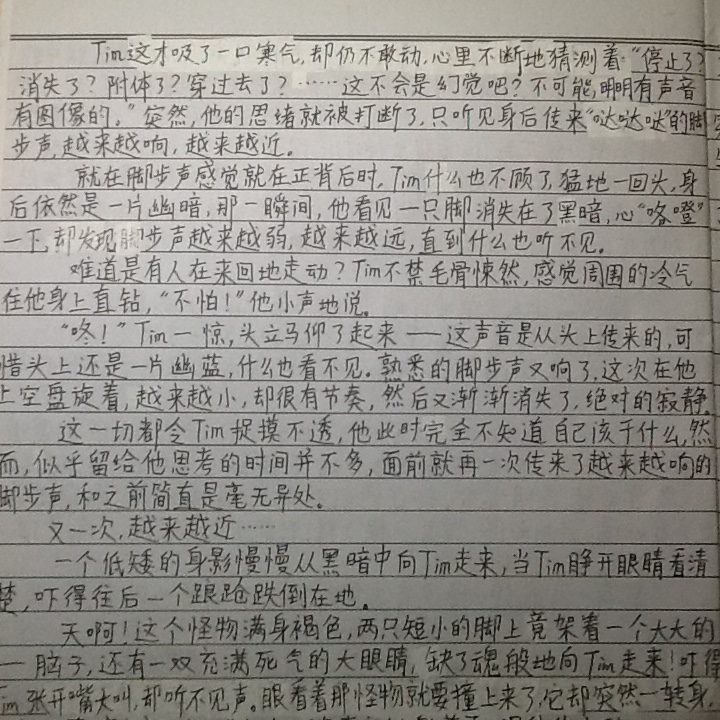 Tim这才吸了一口寒气,却仍不敢动,心里不断地猜测着:“停止了?
消失了?附体了?穿过去了?……这不会是幻觉吧?不可能,明明有声音
有图像的。”突然,他的思绪就被打断了,只听见身后传来“哒哒哒”的脚
步声,越来越响,越来越近。
就在脚步声感觉就在正背后时,Tim什么也不顾了,猛地一回头,身
后依然是一片幽暗,那一瞬间,他看见一只脚消失在了黑暗,心“咯噔”
一下,却发现脚步声越来越弱,越来越远,直到什么也听不见。
难道是有人在来回地走动?Tim不禁毛骨悚然,感觉周围的冷气
往他身上直钻,“不怕!”他小声地说。
“咚!”Tim一惊,头立马仰了起来——这声音是从头上传来的,可
惜头上还是一片幽蓝,什么也看不见。熟悉的脚步声又响了,这次在他
上空盘旋着,越来越小,却很有节奏,然后又渐渐消失了,绝对的寂静。
这一切都令Tim捉摸不透,他此时完全不知道自己该干什么,然
而,似乎留给他思考的时间并不多,面前就再一次传来了越来越响的
脚步声,和之前简直是毫无异处。
又一次,越来越近……
一个低矮的身影慢慢从黑暗中向Tim走来,当Tim睁开眼睛看清
楚,吓得往后一个踉跄跌倒在地。
天啊!这个怪物满身褐色,两只短小的脚上竟架着一个大大的
一脑子,还有一双充满死气的大眼睛,缺了魂般地向Tim走来!吓得
Tim张开嘴大叫,却听不见声。眼看着那怪物就要撞上来了,它却突然一转身,